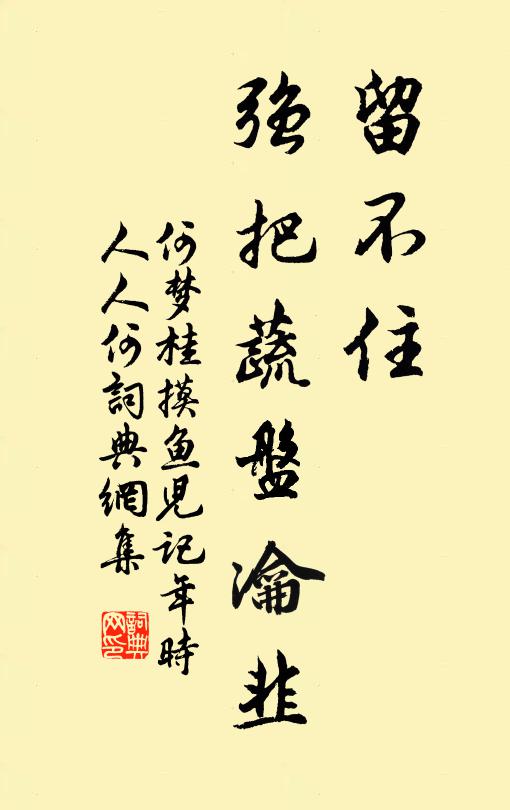 留不住
強把蔬盤瀹韭
何梦桂摸魚児記年時
人人何詞典網集
詞典
网印